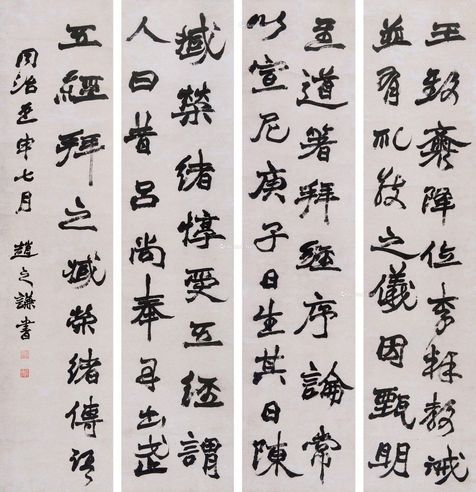 王致齋降位李釋教誡
並有礼敬之儀因甄明
至道箸拜經序論常
以宣尼庚子日生其日陳
臧榮緒惇愛五經謂
人曰昔呂尚奉丹書武
五經拜之臧榮緒傳語
同治壬申七月 趙之謙書